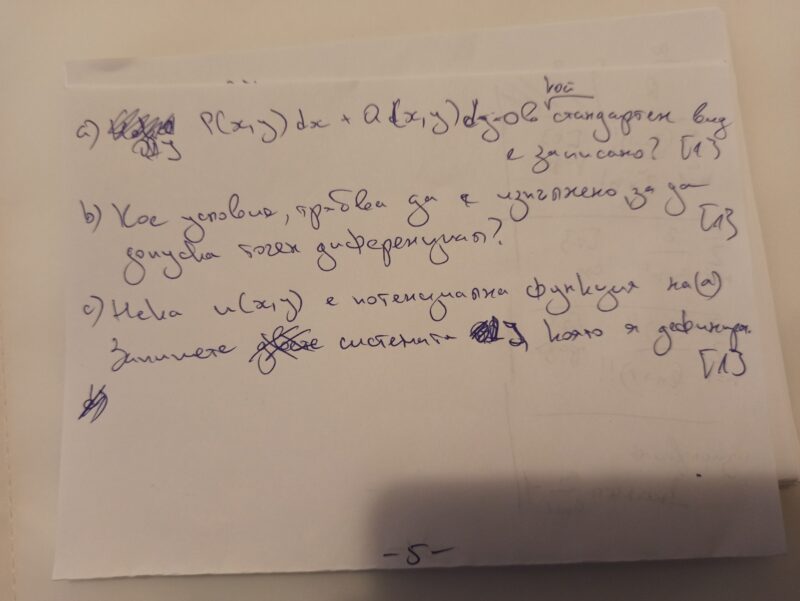 кой
а) P(x,y) dx + Q(x,y) dy=0 в стандартен вид
е записано? [1]
b) Кое условие, трябва да е изпълнено, за да
допуска точен диференциал? [1]
c) Нека u(x,y) е потенциална функция на (a)
Запишете системата, която я дефинира.
[1]
-5-